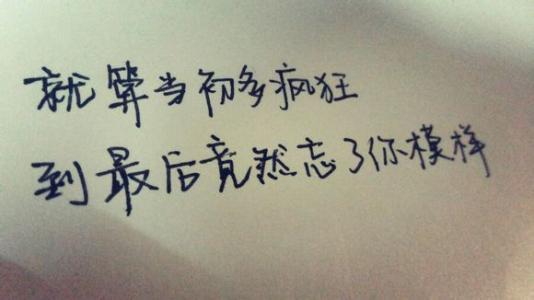 就算当初多疯狂
到最后竟然忘了你模样